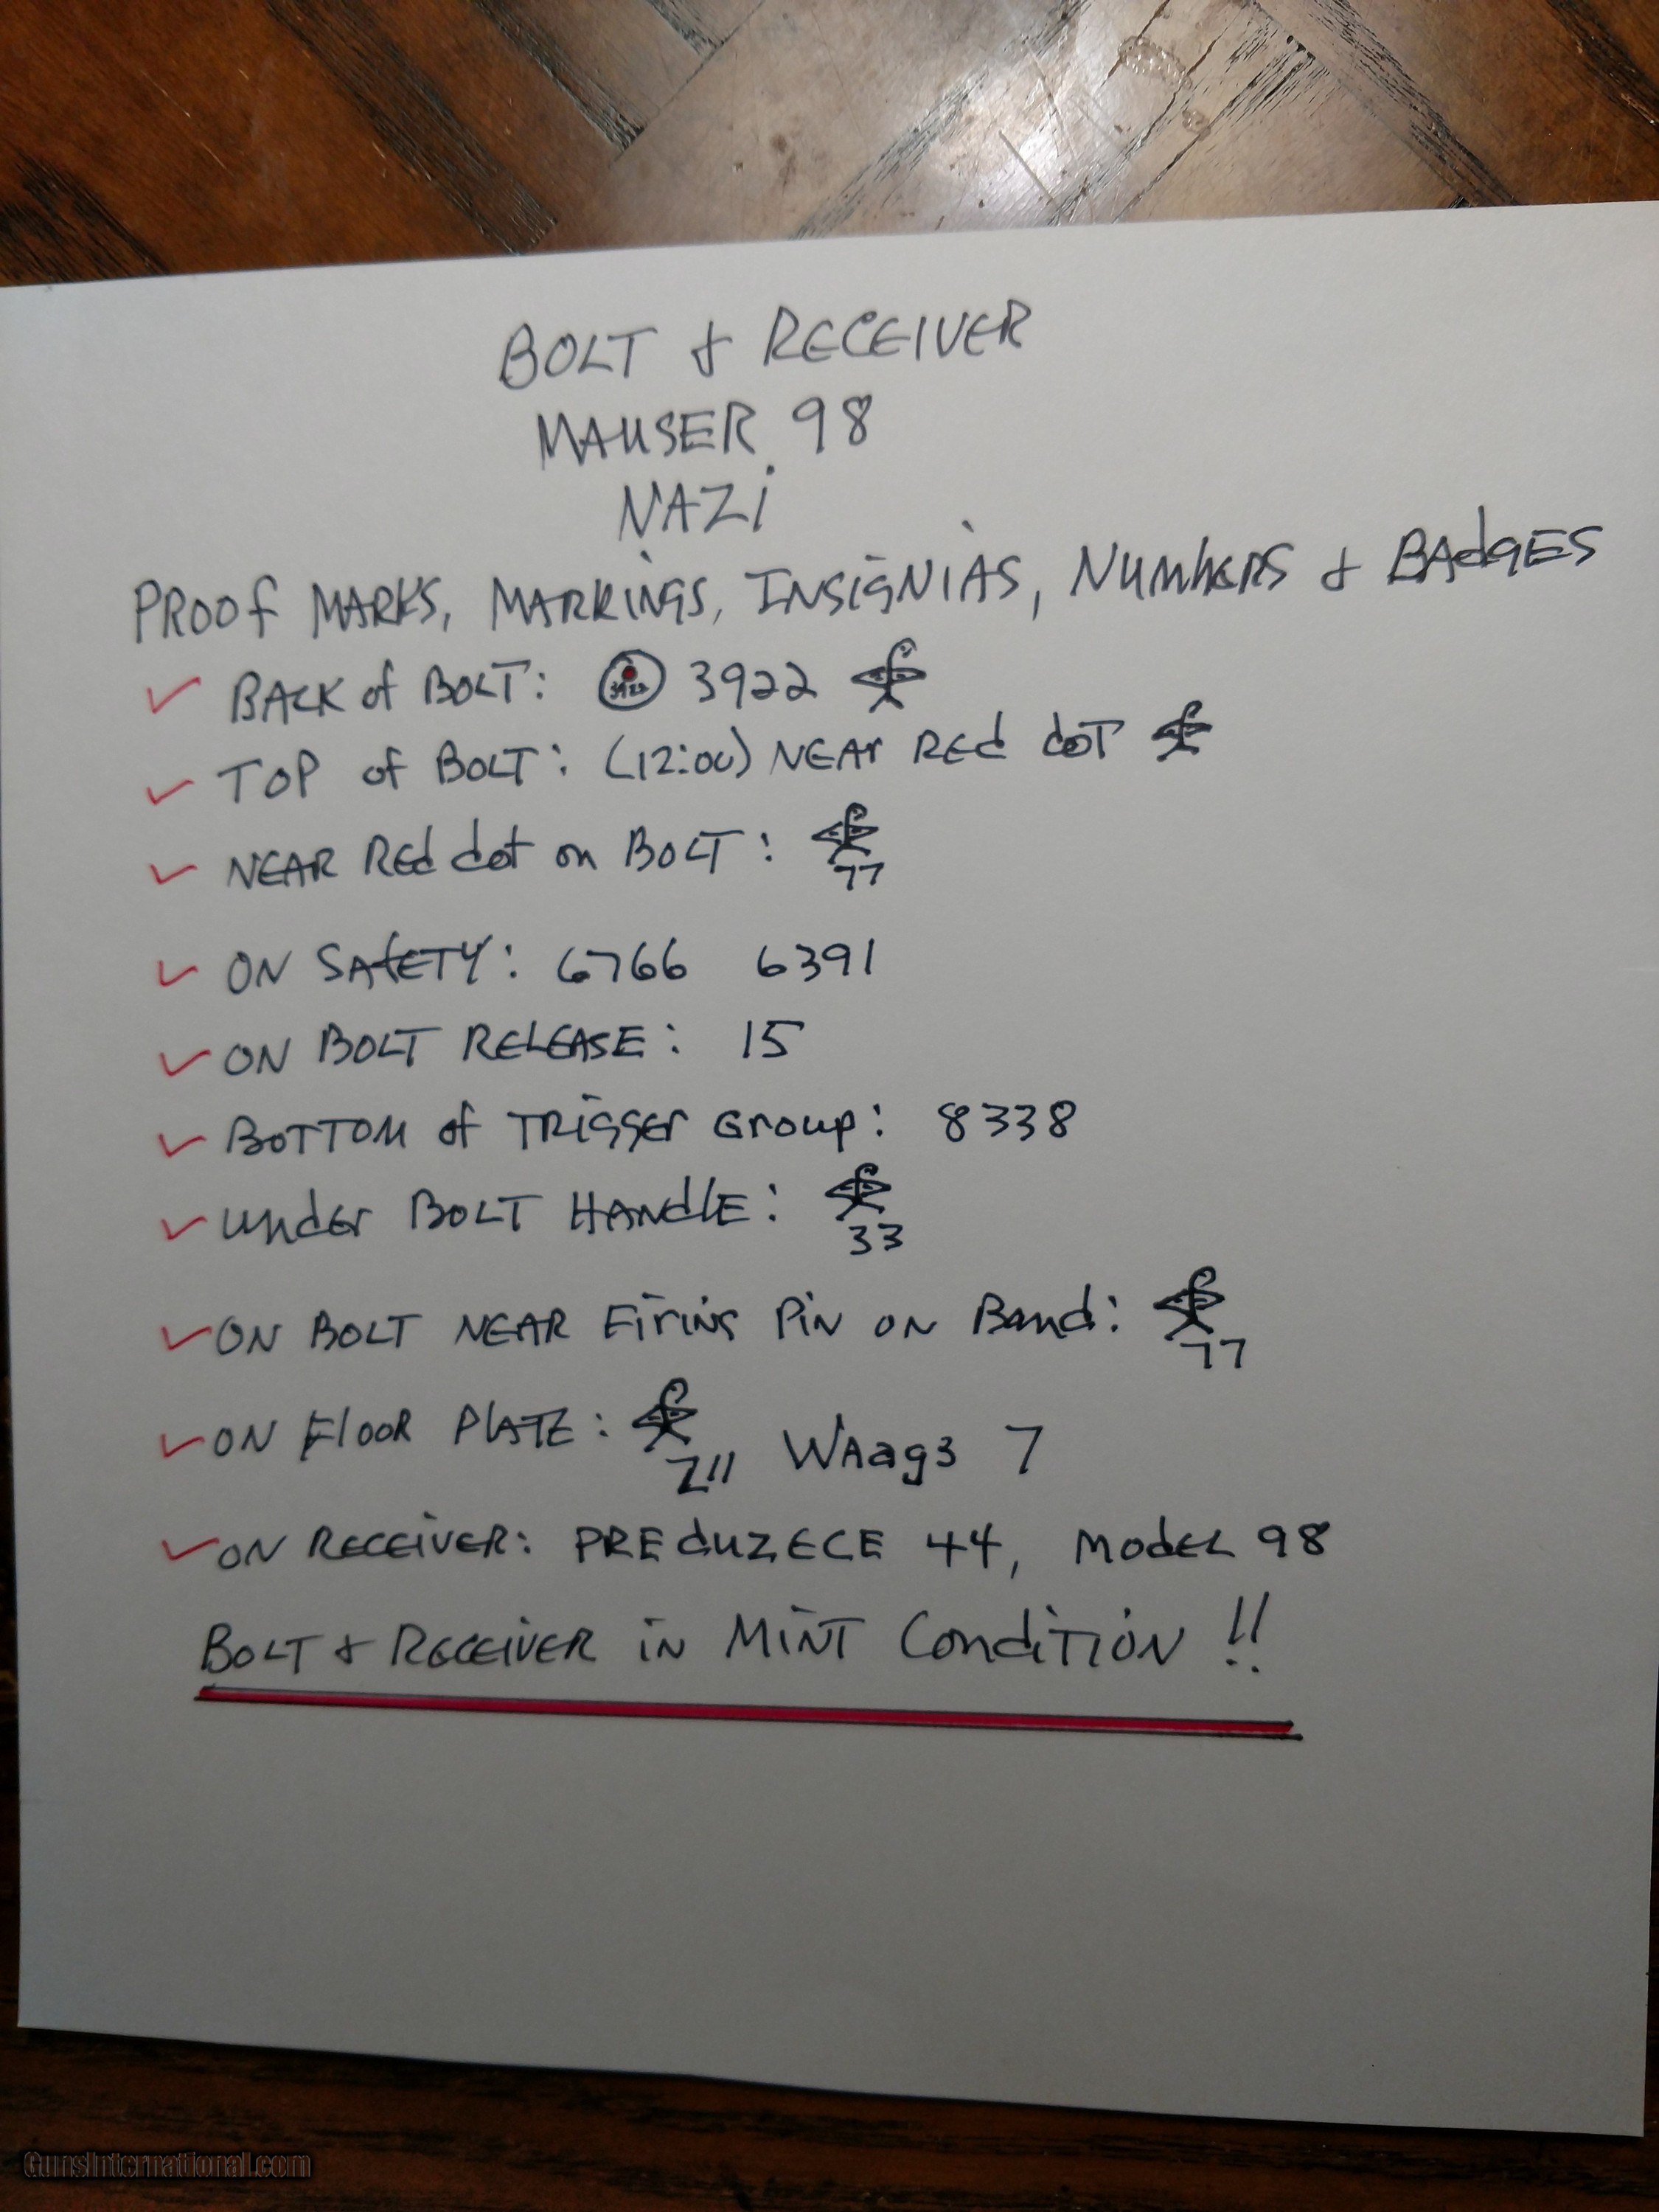 BOLT & RECEIVER
MAUSER 98
NAZI
PROOF MARKS, MARKINGS, INSIGNIAS, NUMbERS & BADGES
BACK of BOLT: 3922 3922
TOP of BOLT: (12:00) NEAr REd dOT
NEAR REd dot on BOLT: 77
ON SAfETY: 6766 6391
ON BOLT RELEASE: 15
BOTTOM of TRIGGEr Group: 8338
UndEr BOLT HANdlE: 33
ON BOLT NEAR FiriNG PiN ON Band: 77
ON FlOOR PlATE: Z11 WAag3 7
ON RECEIVER: PREdUZECE 44, ModEL 98
BOLT & RECEIVER iN MiNT CondiTiON !!
GunsInternational.com